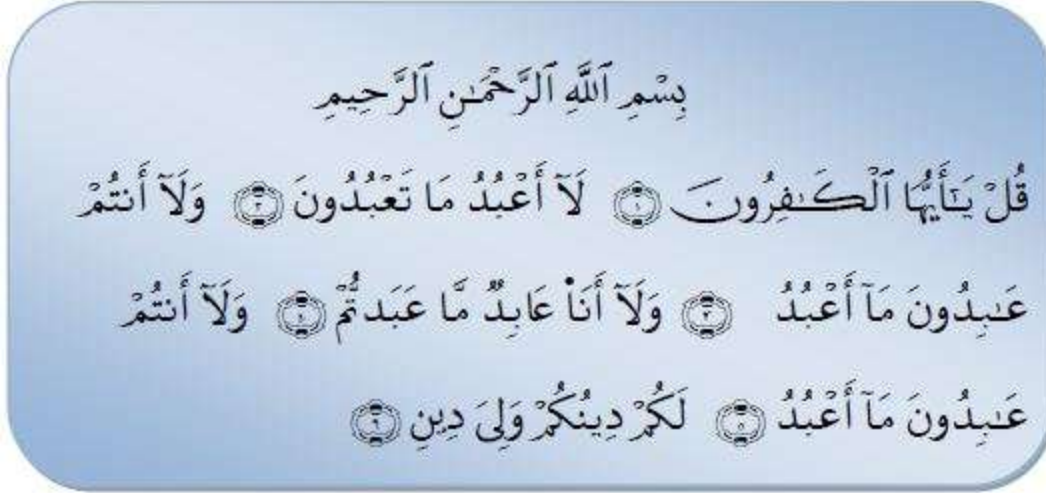 بِسْمِ ٱللَّهِ ٱلرَّحْمَـٰنِ ٱلرَّحِيمِ
قُلْ يَـٰٓأَيُّهَا ٱلْكَـٰفِرُونَ ﴿١﴾ لَآ أَعْبُدُ مَا تَعْبُدُونَ ﴿٢﴾ وَلَآ أَنتُمْ
عَـٰبِدُونَ مَآ أَعْبُدُ ﴿٣﴾ وَلَآ أَنَا۠ عَابِدٌ مَّا عَبَدتُّمْ ﴿٤﴾ وَلَآ أَنتُمْ
عَـٰبِدُونَ مَآ أَعْبُدُ ﴿٥﴾ لَكُمْ دِينُكُمْ وَلِىَ دِينِ ﴿٦﴾